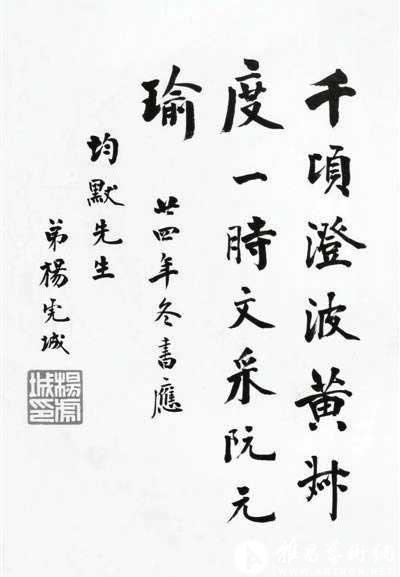 千頃澄波黄叔
度一時文采阮元
瑜
廿四年冬書應
均默先生
弟楊虎城
楊虎城印
雅昌艺术网
WWW.ARTRON.NET